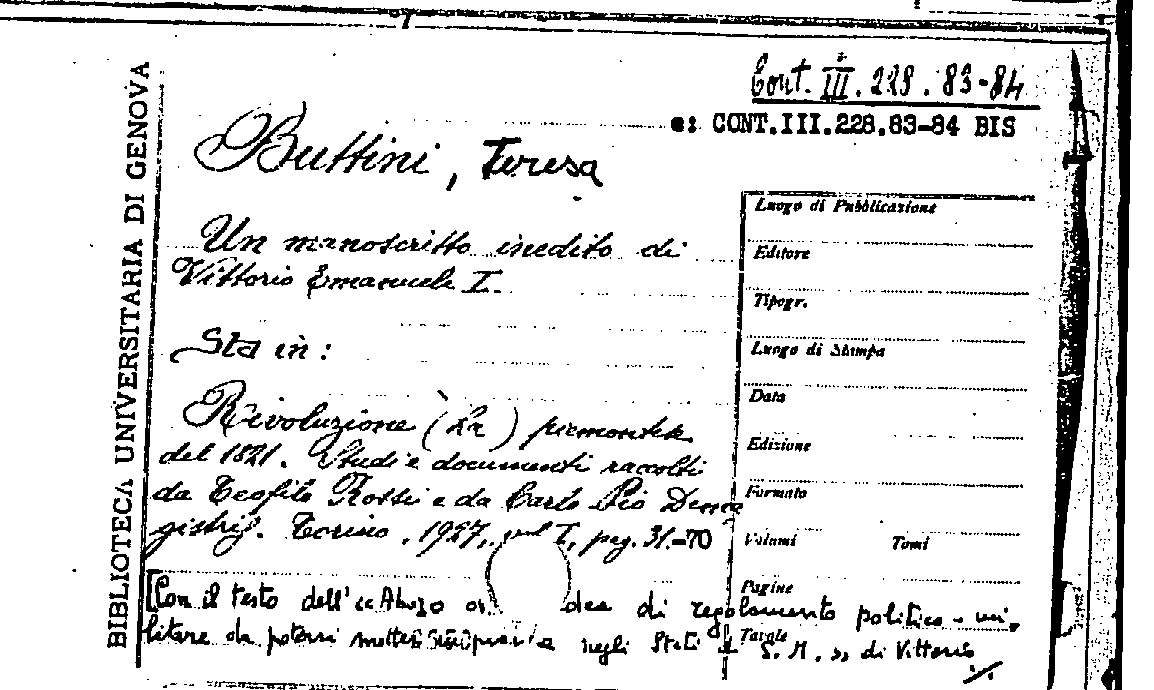 Cont. III. 228. 83-84
e: CONT.III.228.83-84 BIS
BIBLIOTECA UNIVERSITARIA DI GENOVA
Buttini, Teresa
Un manoscritto inedito di
Vittorio Emanuele I.
Sta in:
Rivoluzione (La) piemontese
del 1821. Studi e documenti raccolti
da Teofilo Rossi e da Carlo Pio Demagistris. Torino, 1927, vol I, pag. 31-70
[Con il testo dell'<< Abozo di regolamento politico-mi-
litare da potersi mettere in negli Stati di S. M. >> di Vittorio
./.
Luogo di Pubblicazione
Editore
Tipogr.
Luogo di Stampa
Data
Edizione
Formato
Volumi Tomi
Pagine
Tavole